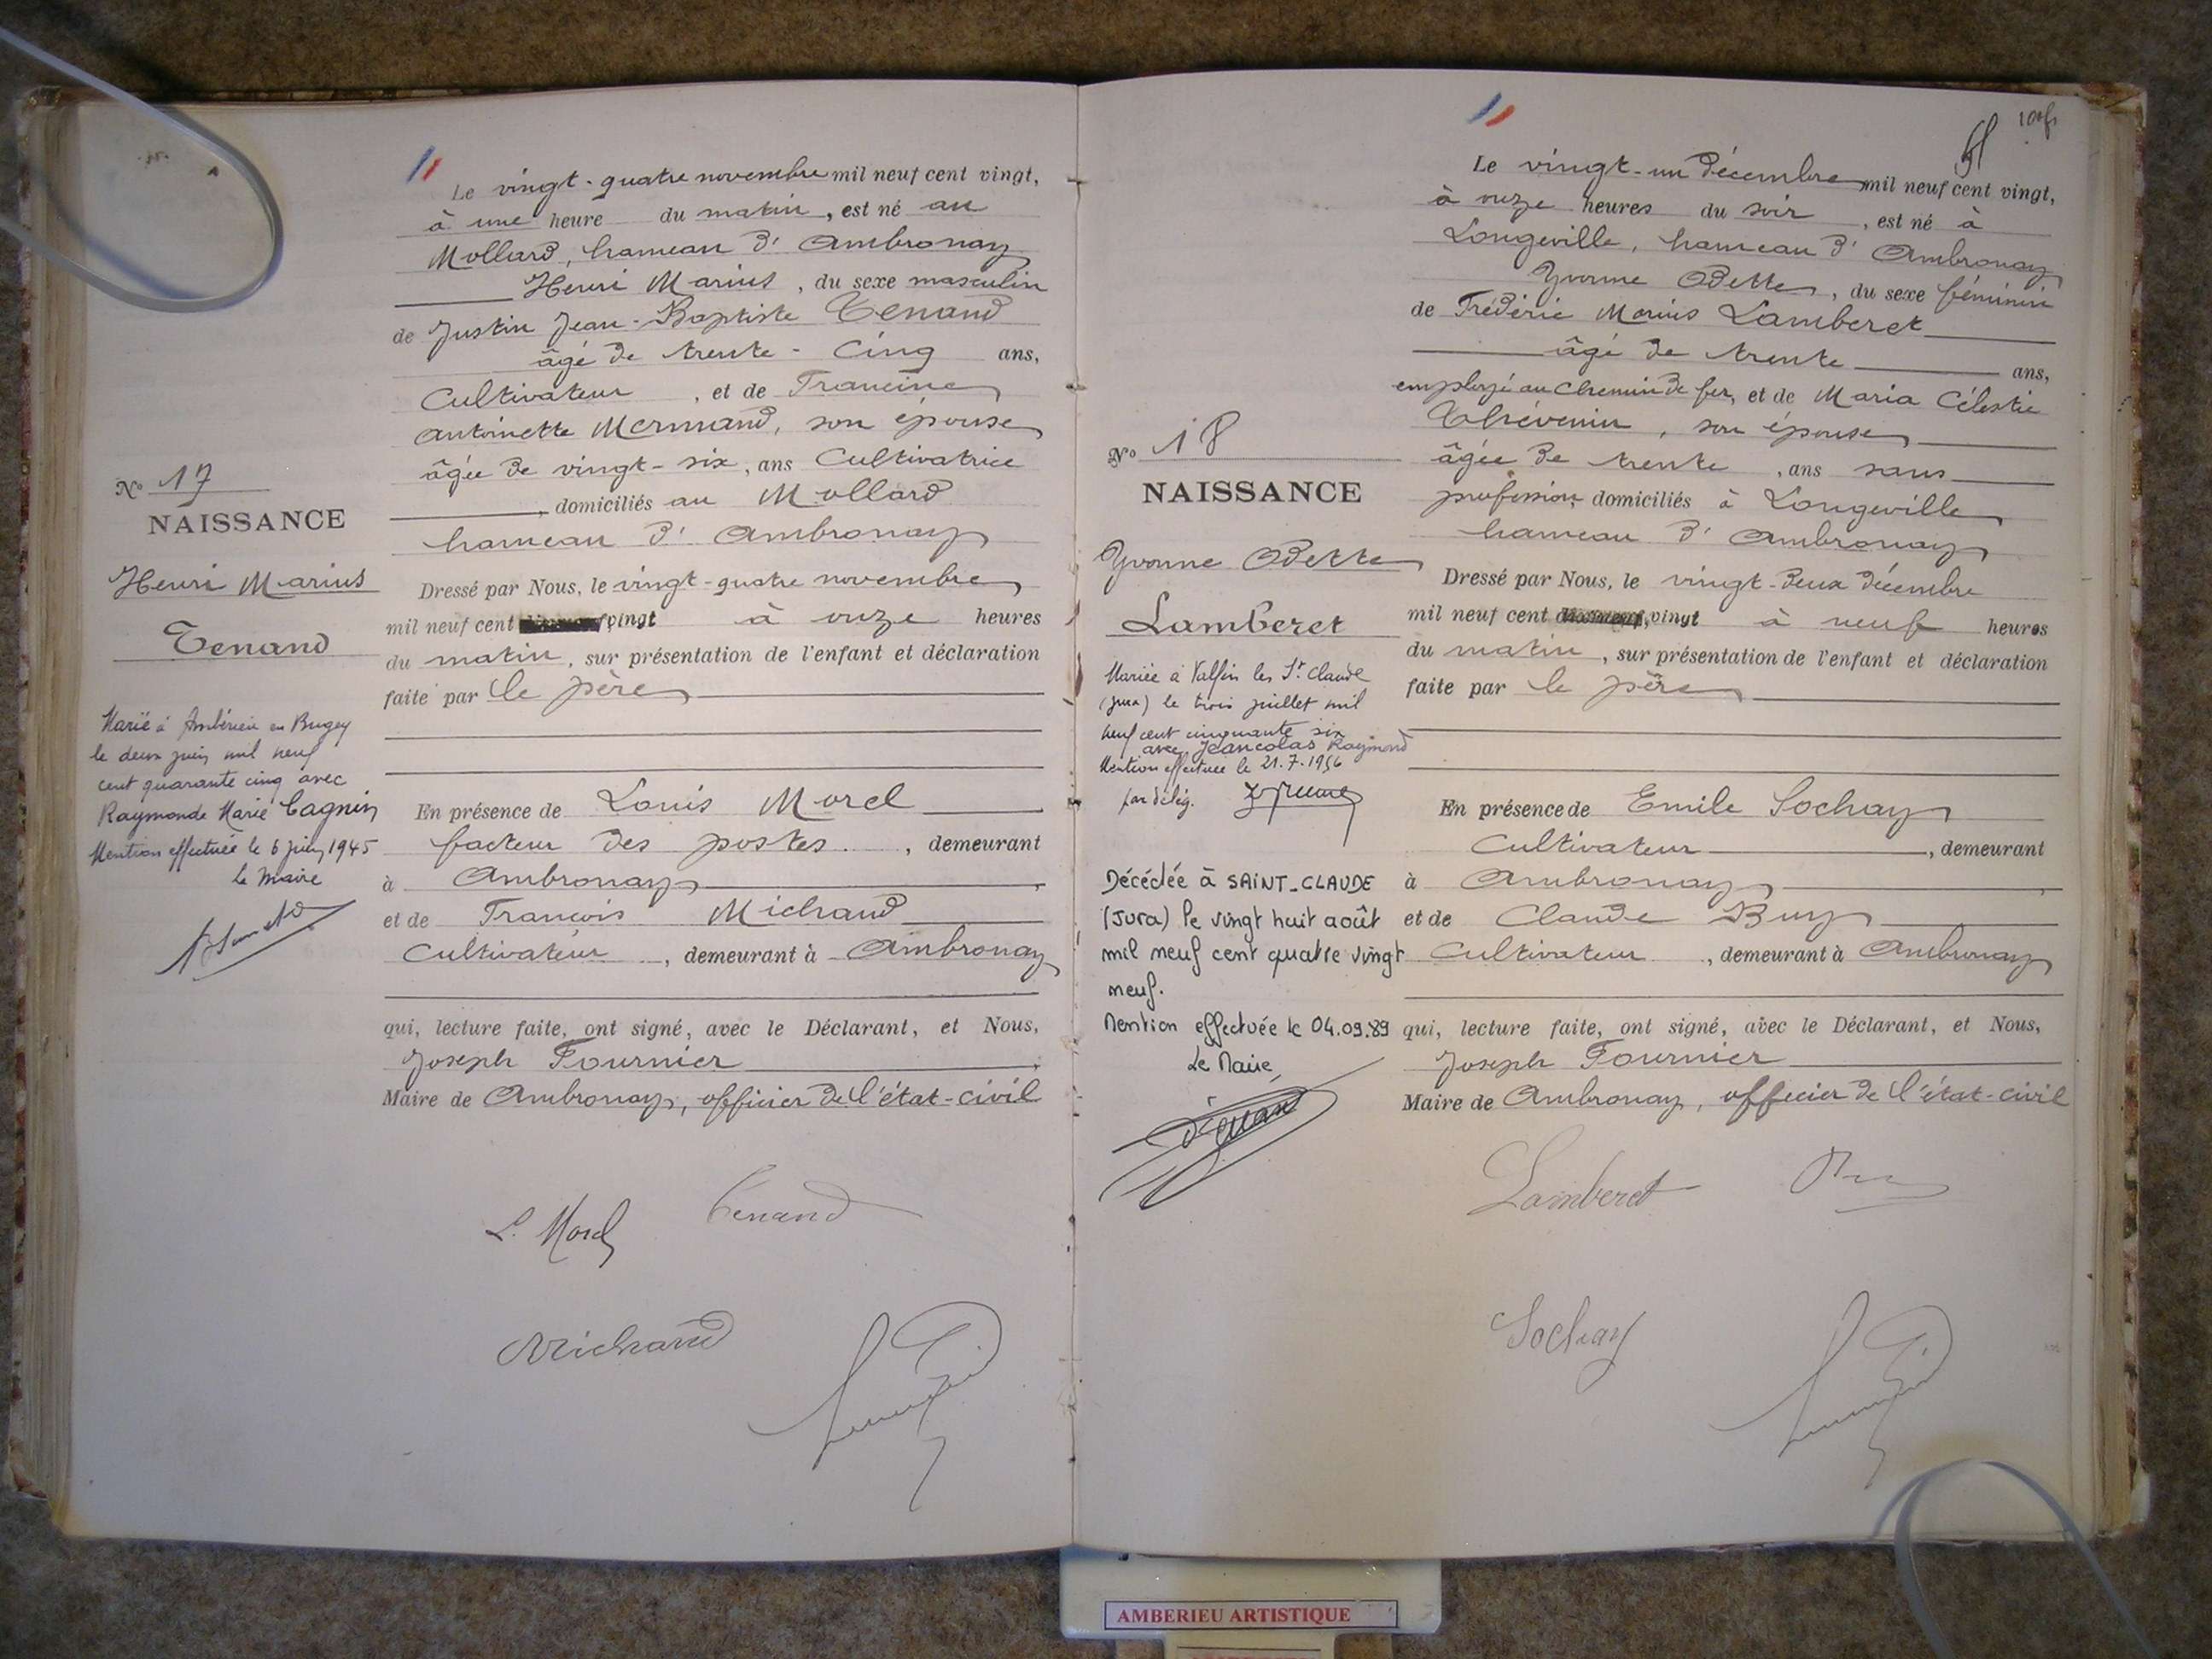 Le vingt-quatre novembre mil neuf cent vingt,
à une heure du matin, est né au
Mollard, hameau d'Ambronay
Henri Marius, du sexe masculin
de Justin Jean-Baptiste Tenand
âgé de trente-cinq ans,
cultivateur, et de Francine
Antoinette Mermand, son épouse
âgée de vingt-six, ans Cultivatrice
, domiciliés au Mollard
hameau d'Ambronay
No 17
NAISSANCE
Henri Marius
Tenand
Dressé par Nous, le vingt-quatre novembre
mil neuf cent vingt à onze heures
du matin, sur présentation de l'enfant et déclaration
faite par le père
Marié à Ambérieu en Bugey
le deux juin mil neuf
cent quarante cinq avec
Raymonde Marie Cagnin
Mention effectuée le 6 juin 1945
le Maire
En présence de Louis Morel
facteur des postes, demeurant
à Ambronay
et de François Michaud
Cultivateur, demeurant à Ambronay
qui, lecture faite, ont signé, avec le Déclarant, et Nous,
Joseph Fournier
Maire de Ambronay, officier de l'état-civil
L. Morel Tenand
Michaud
100f
Le vingt-un décembre mil neuf cent vingt,
à onze heures du soir, est né à
Longeville, hameau d'Ambronay
Yvonne Odette, du sexe féminin
de Frédéric Marius Lamberet
âgé de trente ans,
employé au chemin de fer, et de Maria Célestie
Thévenin, son épouse
âgée de trente, ans sans
profession, domiciliés à Longeville
hameau d'Ambronay
No 18
NAISSANCE
Yvonne Odette
Lamberet
Dressé par Nous, le vingt-deux décembre
mil neuf cent vingt à neuf heures
du matin, sur présentation de l'enfant et déclaration
faite par le père
Mariée à Valfin les St Claude
(Jura) le trois juillet mil
neuf cent cinquante six
avec Jeancolas Raymond
Mention effectuée le 21.7.1956
par délég.
Décédée à SAINT-CLAUDE
(Jura) le vingt huit août
mil neuf cent quatre vingt
neuf.
Mention effectuée le 04.09.89
Le Maire,
En présence de Emile Sochay
Cultivateur, demeurant
à Ambronay
et de Claude Buy
Cultivateur, demeurant à Ambronay
qui, lecture faite, ont signé, avec le Déclarant, et Nous,
Joseph Fournier
Maire de Ambronay, officier de l'état-civil
Lamberet
Sochay
AMBERIEU ARTISTIQUE